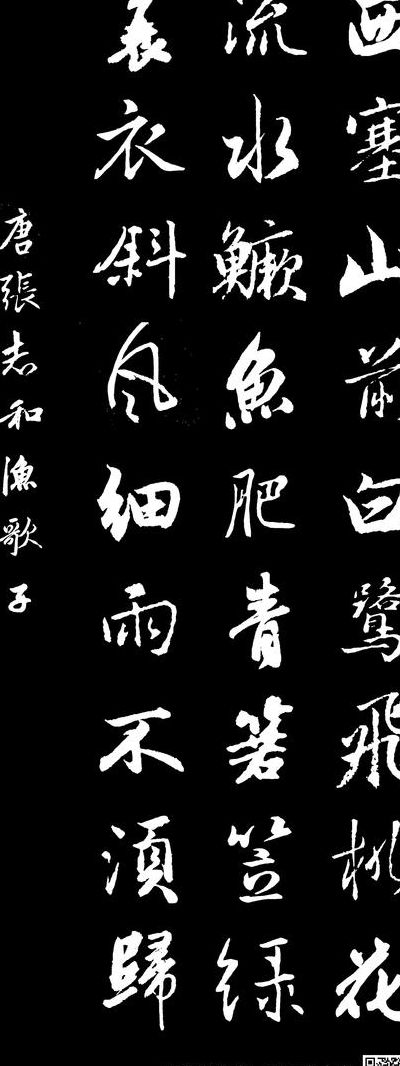 西塞山前白鷺飛桃花
流水鱖魚肥青箬笠绿
蓑衣斜风細雨不須歸
唐張志和漁歌子